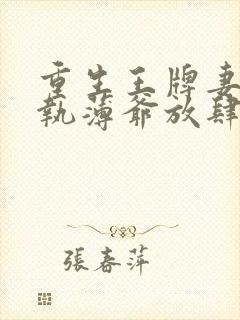 重生王牌妻
執薄爺放肆
張春萍